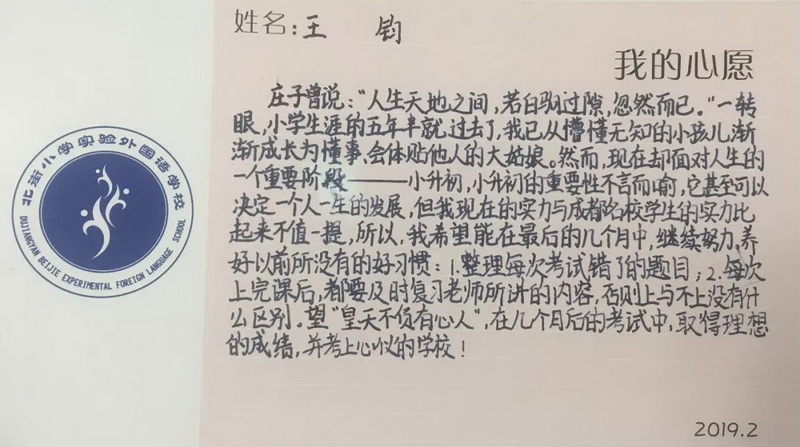 姓名:王 钧
我的心愿
庄子曾说:“人生天地之间,若白驹过隙,忽然而已。”一转
眼,小学生涯的五年半就过去了,我已从懵懂无知的小孩儿渐
渐成长为懂事、会体贴他人的大姑娘。然而,现在却面对人生的
一个重要阶段————小升初,小升初的重要性不言而喻,它甚至可以
决定一个人一生的发展,但我现在的实力与成都名校学生的实力比
起来不值一提,所以,我希望能在最后的几个月中,继续努力,养
好以前所没有的好习惯:1.整理每次考试错了的题目;2.每次
上完课后,都要及时复习老师所讲的内容,否则上与不上没有什
么区别。望“皇天不负有心人”,在几个月后的考试中,取得理想
的成绩,并考上心仪的学校!
2019.2
北街小学实验外国语学校
DUJIANGYAN BEIJIE EXPERIMENTAL FOREIGN LANGUAGE SCHOOL